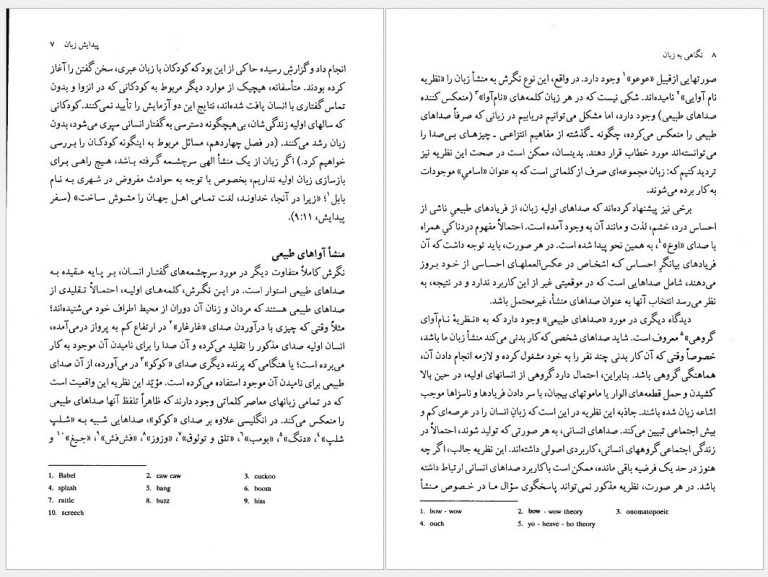 پیدایش زبان ۷
انجام داد و گزارشِ رسیده حاکی از این بود که کودکان با زبان عبری، سخن گفتن را آغاز
کرده بودند. متأسفانه، هیچیک از موارد دیگر مربوط به کودکانی که در انزوا و بدون
تماس گفتاری با انسان یافت شده‌اند، نتایج این دو آزمایش را تأیید نمی‌کنند. کودکانی
که سالهای اولیه زندگی‌شان، بی‌هیچگونه دسترسی به گفتار انسانی سپری می‌شود، بدون
زبان رشد می‌کنند. (در فصل چهاردهم، مسائل مربوط به اینگونه کودکان را بررسی
خواهیم کرد.) اگر زبان از یک منشأ الهی سرچشمه گرفته باشد، هیچ راهی برای
بازسازی زبان اولیه نداریم، بخصوص با توجه به حوادث مفروض در شهری به نام
بابل۱؛ «زیرا در آنجا، خداوند، لغت تمامی اهل جهان را مشوش ساخت» (سفر
پیدایش، ۹:۱۱).
منشأ آواهای طبیعی
نگرش کاملاً متفاوت دیگر در مورد سرچشمه‌های گفتار انسان، بر پایه عقیده به
صداهای طبیعی استوار است. در این نگرش، کلمه‌های اولیه، احتمالاً تقلیدی از
صداهای طبیعی هستند که مردان و زنان آن دوران از محیط اطراف خود می‌شنیده‌اند؛
مثلاً وقتی که چیزی با درآوردن صدای «غارغار»۲ در ارتفاع کم به پرواز درمی‌آمده،
انسان اولیه صدای مذکور را تقلید می‌کرده و آن صدا را برای نامیدن آن موجود به کار
می‌برده است؛ یا هنگامی که پرنده دیگری صدای «کوکو»۳ در می‌آورده، از آن صدای
طبیعی برای نامیدن آن موجود استفاده می‌کرده است. مؤیّد این نظریه این واقعیت است
که در تمامی زبانهای معاصر کلماتی وجود دارند که ظاهراً تلفظ آنها صداهای طبیعی
را منعکس می‌کند. در انگلیسی علاوه بر صدای «کوکو»، صداهایی شبیه به «شلپ
شلپ»۴، «دنگ»۵، «بومب»۶، «تلق و تولوق»۷، «وزوز»۸، «فش‌فش»۹، «جیغ»۱۰ و
1. Babel 2. caw caw 3. cuckoo
4. splash 5. bang 6. boom
7. rattle 8. buzz 9. hiss
10. screech
۸ نگاهی به زبان
صورتهایی ازقبیل «عوعو»۱ وجود دارد. در واقع، این نوع نگرش به منشأ زبان را «نظریه
نام آوایی»۲ نامیده‌اند. شکی نیست که در هر زبان کلمه‌های «نام‌آوا»۳ (منعکس کننده
صداهای طبیعی) وجود دارد، اما مشکل می‌توانیم دریابیم در زبانی که صرفاً صداهای
طبیعی را منعکس می‌کرده، چگونه ـ گذشته از مفاهیم انتزاعی ـ چیزهای بی‌صدا را
می‌توانسته‌اند مورد خطاب قرار دهند. بدینسان، ممکن است در صحت این نظریه نیز
تردید کنیم که: زبان مجموعه‌ای صرف از کلماتی است که به عنوان «اسامیِ» موجودات
به کار برده می‌شوند.
برخی نیز پیشنهاد کرده‌اند که صداهای اولیه زبان، از فریادهای طبیعیِ ناشی از
احساس درد، خشم، لذت و مانند آن به وجود آمده است. احتمالاً مفهوم دردناکیِ همراه
با صدای «اوخ»۴، به همین نحو پیدا شده است. در هر صورت، باید توجه داشت که آن
فریادهای بیانگرِ احساس که اشخاص در عکس‌العملهای احساسی از خود بروز
می‌دهند، شامل صداهایی است که در موقعیتی غیر از این کاربرد ندارد و در نتیجه، به
نظر می‌رسد انتخاب آنها به عنوان صداهای منشأ، غیرمحتمل باشد.
دیدگاه دیگری در مورد «صداهای طبیعی» وجود دارد که به «نظریهٔ نام‌آوای
گروهی»۵ معروف است. شاید صداهای شخصی که کار بدنی می‌کند منشأ زبان ما باشد،
خصوصاً وقتی که آن کار بدنی چند نفر را به خود مشغول کرده و لازمه انجام دادن آن،
هماهنگی گروهی باشد. بنابراین، احتمال دارد گروهی از انسانهای اولیه، در حین بالا
کشیدن و حمل قطعه‌های الوار یا ماموتهای بیجان، با سر دادن فریادها و ناسزاها موجب
اشاعه زبان شده باشند. جاذبه این نظریه در این است که زبانِ انسان را در عرصه‌ای کم و
بیش اجتماعی تبیین می‌کند. صداهای انسانی، به هر صورتی که تولید شوند، احتمالاً در
زندگی اجتماعی گروههای انسانی، کاربردی اصولی داشته‌اند. این نظریه جالب، اگر چه
هنوز در حد یک فرضیه باقی مانده، ممکن است با کاربرد صداهای انسانی ارتباط داشته
باشد. در هر صورت، نظریه مذکور نمی‌تواند پاسخگوی سؤال ما در خصوص منشأ
1. bow - wow 2. bow - wow theory 3. onomatopoeic
4. ouch 5. yo - heave - ho theory